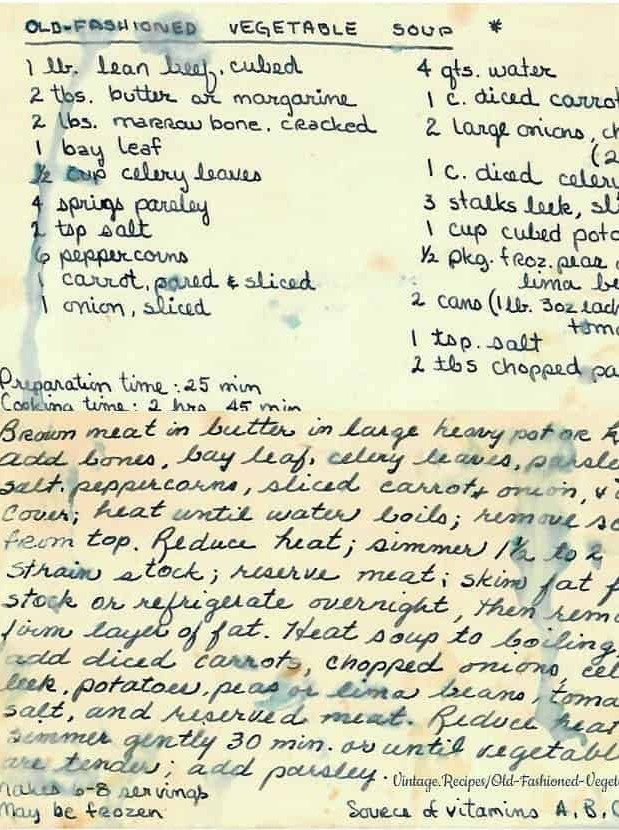 OLD-FASHIONED VEGETABLE SOUP *
1 lb. lean beef, cubed
2 tbs. butter or margarine
2 lbs. marrow bone, cracked
1 bay leaf
½ cup celery leaves
4 sprigs parsley
2 tsp salt
6 peppercorns
1 carrot, pared & sliced
1 onion, sliced
4 qts. water
1 c. diced carrot
2 large onions, ch
(2
1 c. diced celery
3 stalks leek, sli
1 cup cubed pota
½ pkg. froz. peas o
lima be
2 cans (1 lb. 3oz each
toma
1 tsp. salt
2 tbs chopped pa
Preparation time: 25 min
Cooking time: 2 hrs 45 min
Brown meat in butter in large heavy pot or k
add bones, bay leaf, celery leaves, parsle
salt, peppercorns, sliced carrot & onion, &
Cover; heat until water boils; remove sc
from top. Reduce heat; simmer 1½ to 2
Strain stock; reserve meat; skim fat f
stock or refrigerate overnight, then remo
firm layer of fat. Heat soup to boiling,
add diced carrots, chopped onions, cel
leek, potatoes, peas or lima beans, toma
salt, and reserved meat. Reduce heat
simmer gently 30 min. or until vegetabl
are tender; add parsley.
Vintage.Recipes/Old-Fashioned-Veget
Makes 6-8 servings
May be frozen
Source of vitamins A, B, C